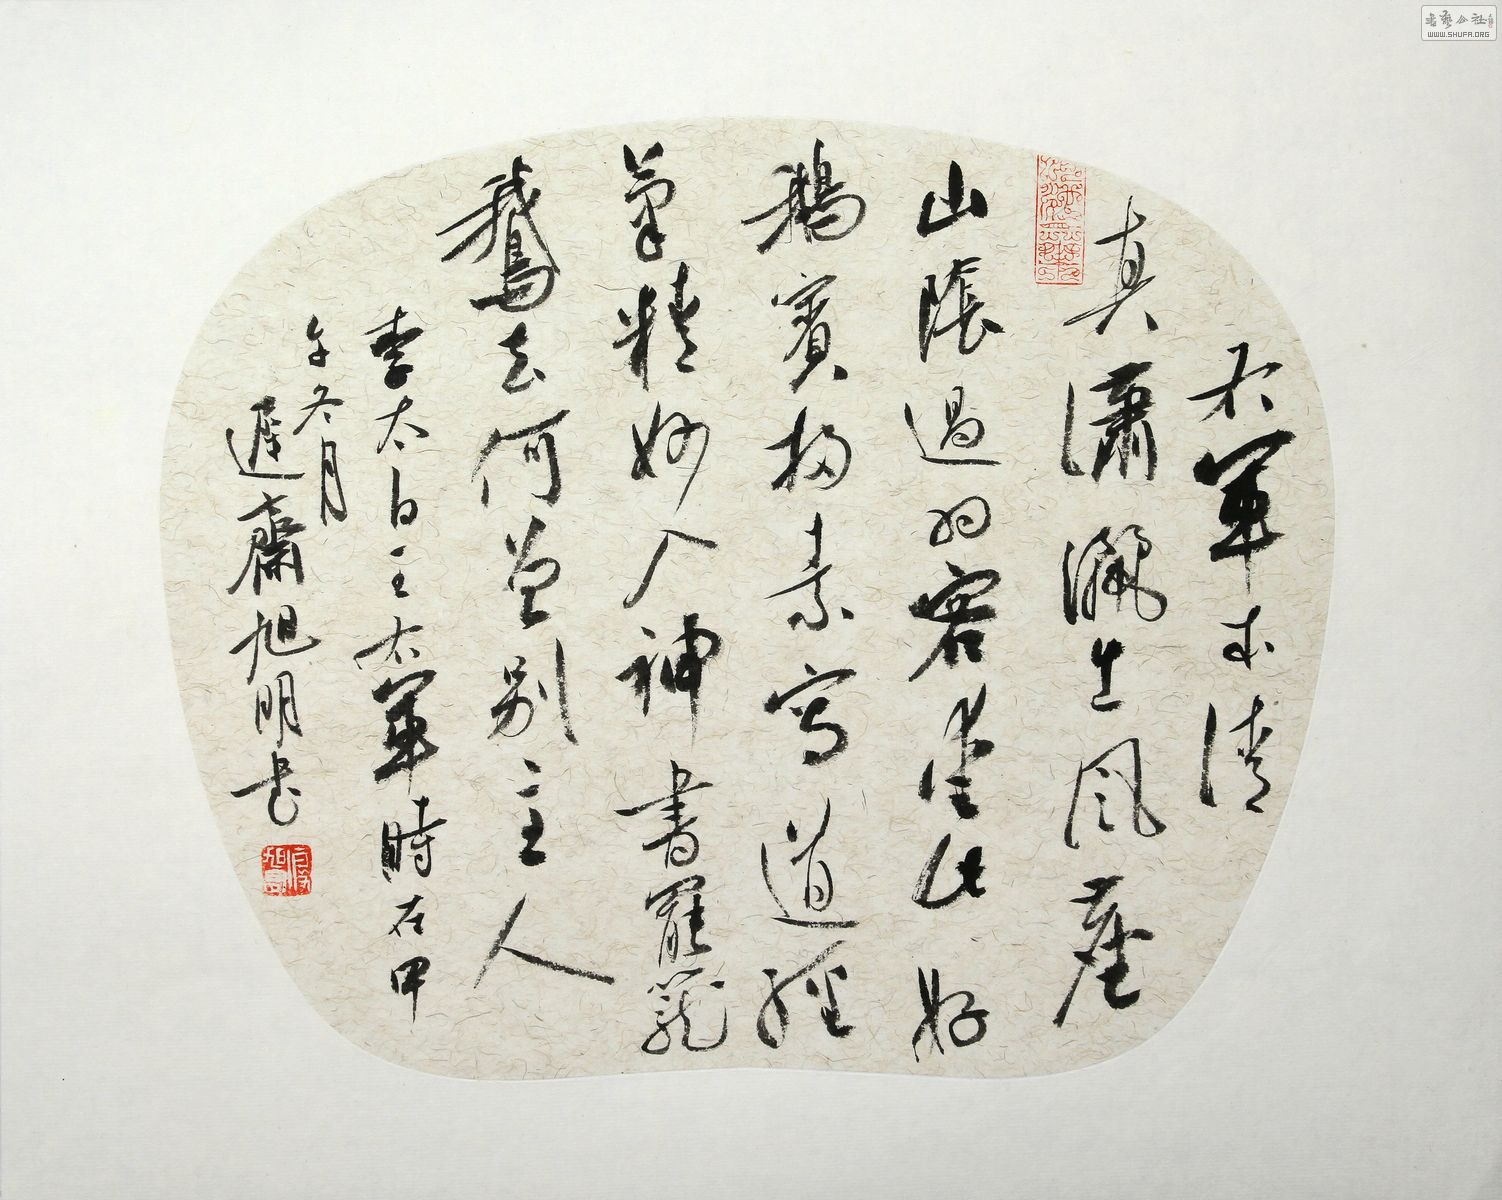 右軍本清
真瀟灑出風塵
山陰過羽客愛此好
鵝賓掃素寫道經
筆精妙入神書罷籠
鵝去何曾別主人
李太白王右軍時在甲
午冬月
遲齋旭明书
书艺公社
WWW.SHUFA.ORG